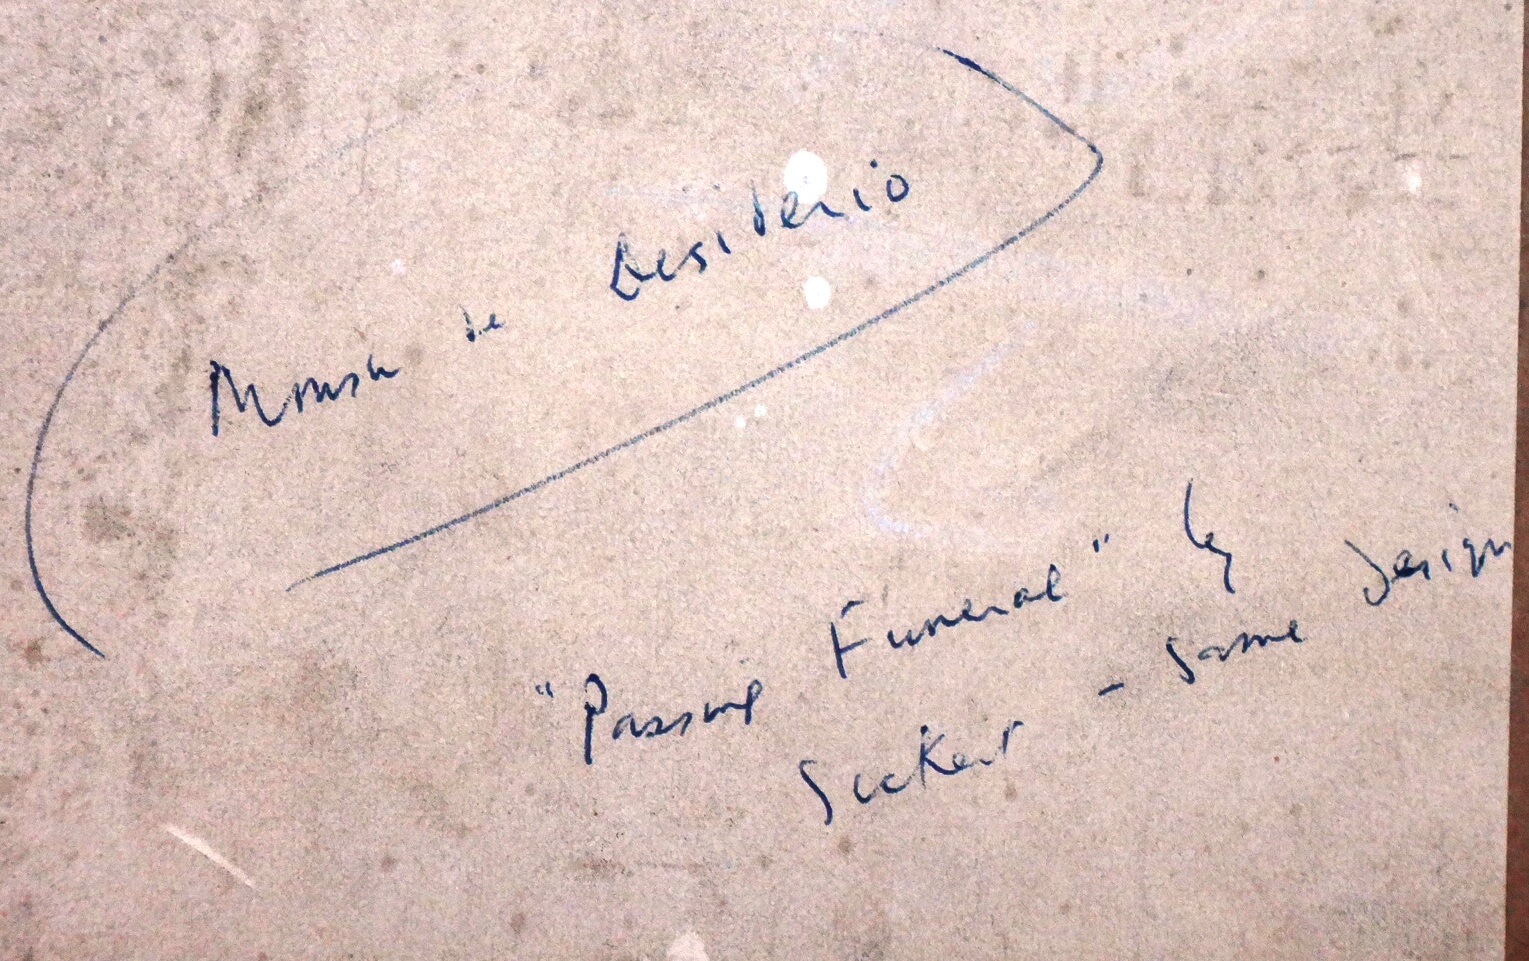 Monsu de Desiderio
"Passing Funeral" by
Sickert - same design